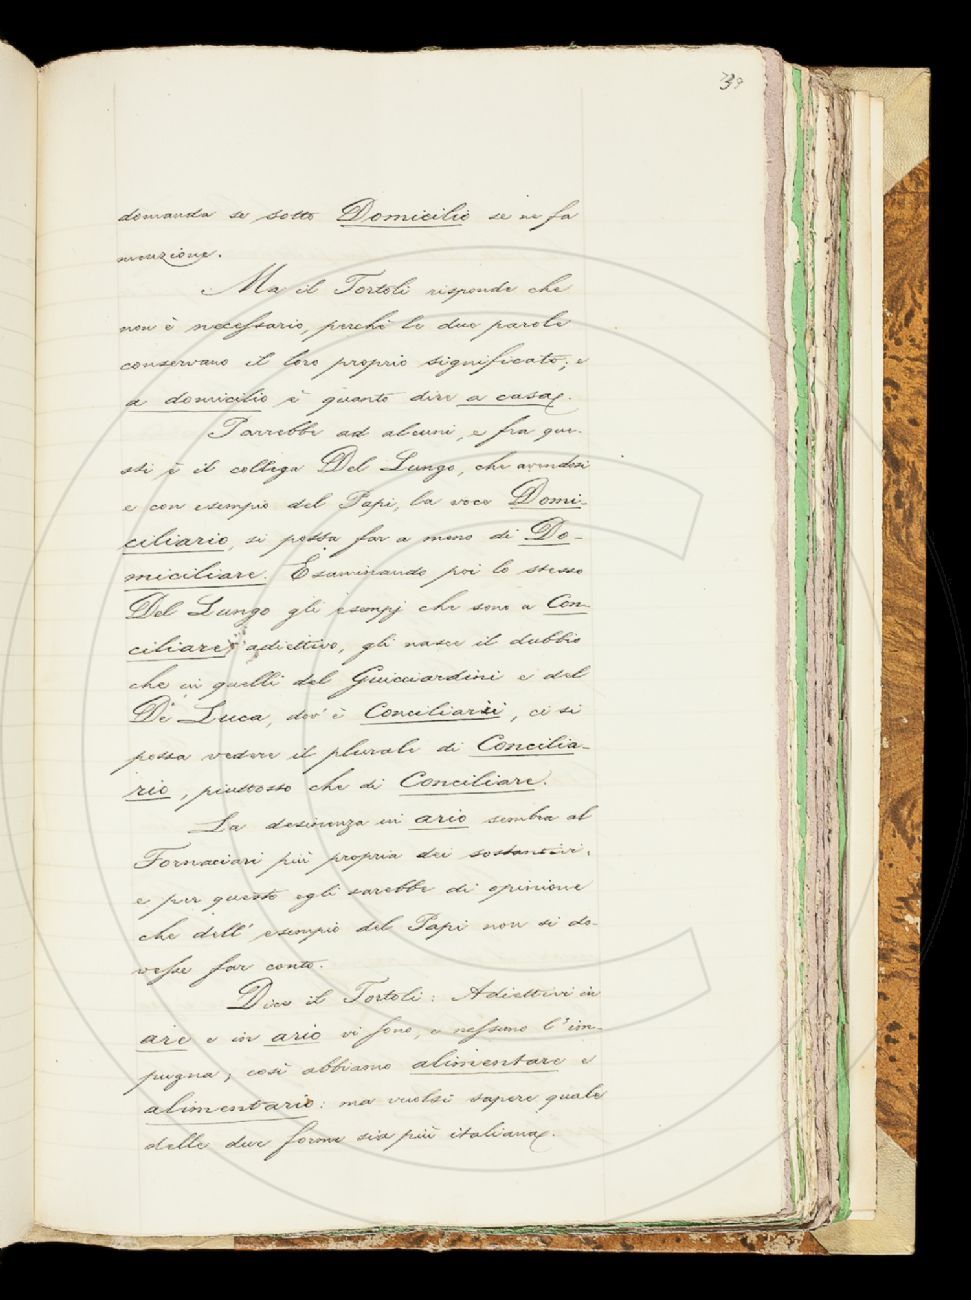 739
domanda se sotto Domicilio se ne fa
menzione.
Ma il Tortoli risponde che
non è necessario, perchè le due parole
conservano il loro proprio significato; e
a domicilio è quanto dire a casa.
Parrebbe ad alcuni, e fra que-
sti è il collega Del Lungo, che avendosi
e con esempio del Papi, la voce Domi-
ciliario, si possa far a meno di Do-
miciliare. Esaminando poi lo stesso
Del Lungo gli esempj che sono a Con-
ciliare, adiettivo, gli nasce il dubbio
che in quelli del Guicciardini e del
De Luca, dov' è Conciliarii, ci si
possa vedere il plurale di Concilia-
rio, piuttosto che di Conciliare.
La desinenza in ario sembra al
Fornaciari più propria dei sostantivi.
e per questo egli sarebbe di opinione
che dell' esempio del Papi non si do-
vesse far conto.
Dice il Tortoli: Adiettivi in
are e in ario vi sono, e nessuno l' im-
pugna; così abbiamo alimentare e
alimentario: ma vuolsi sapere quale
delle due forme sia più italiana.